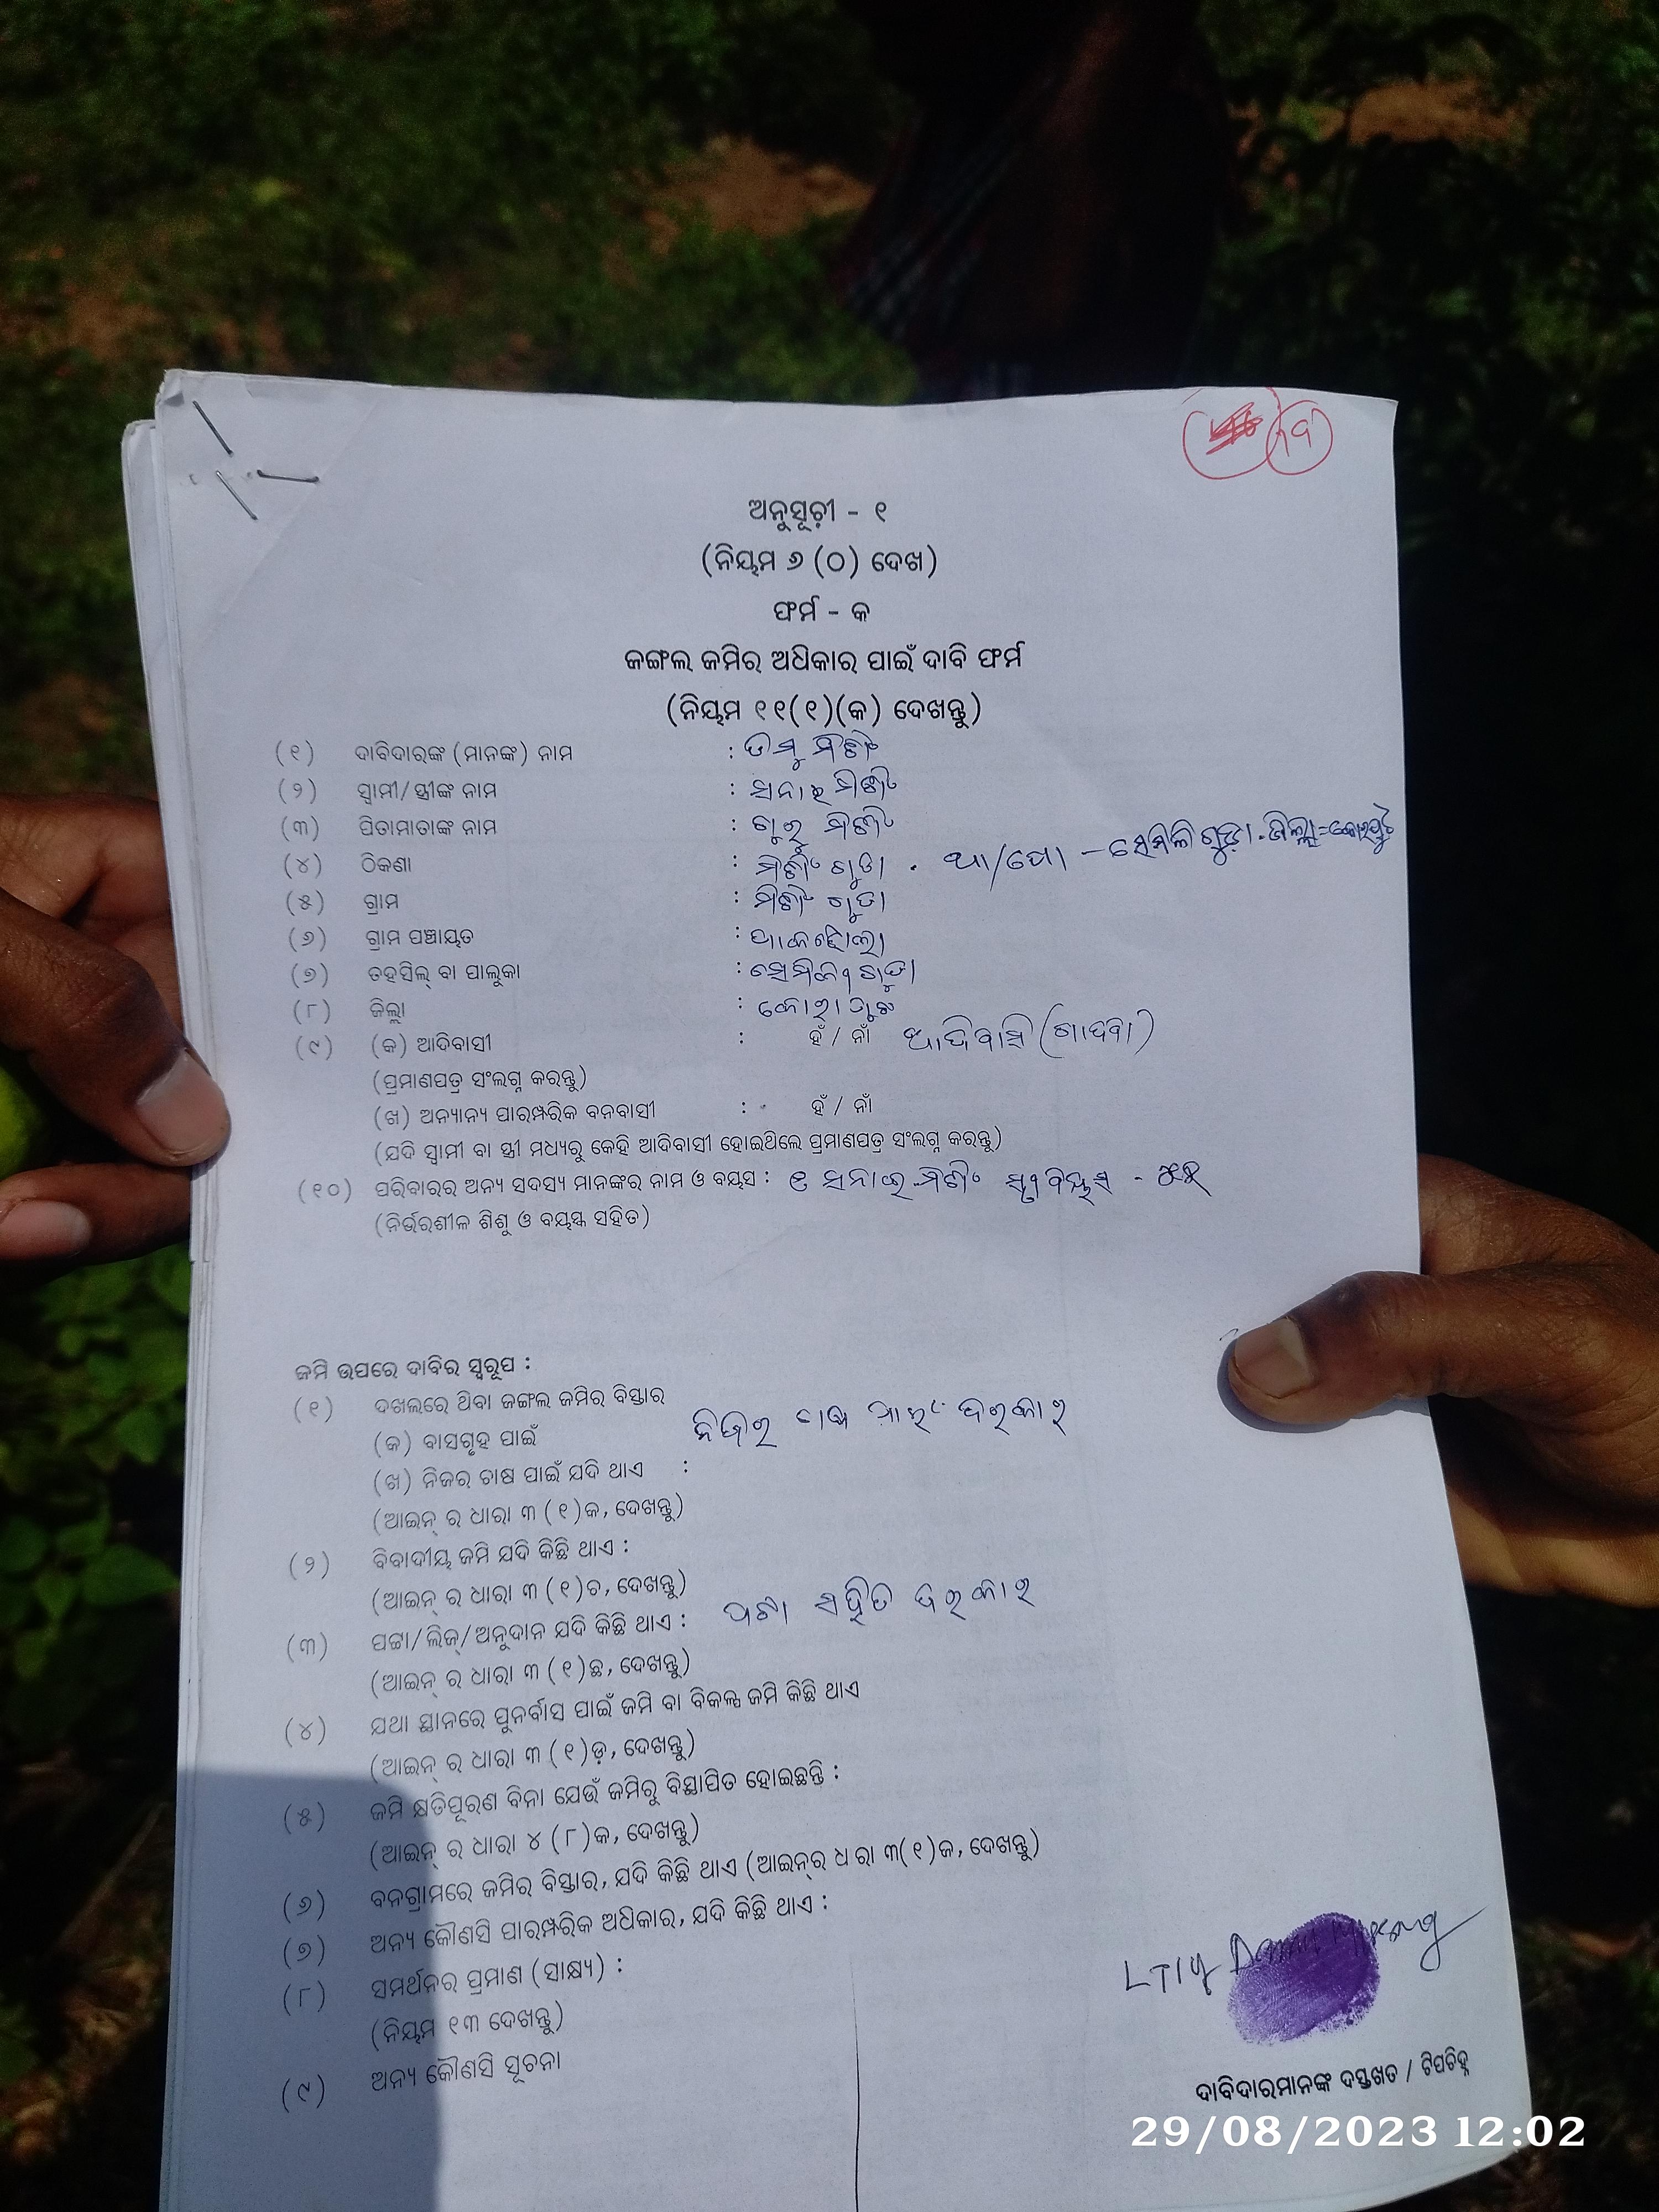 ଅନୁସୂଚୀ - ୧
(ନିୟମ ୬ (୦) ଦେଖ)
ଫର୍ମ - କ
ଜଙ୍ଗଲ ଜମିର ଅଧିକାର ପାଇଁ ଦାବି ଫର୍ମ
(ନିୟମ ୧୧(୧)(କ) ଦେଖନ୍ତୁ)
(୧) ଦାବିଦାରଙ୍କ (ମାନଙ୍କ) ନାମ :
(୨) ସ୍ଵାମୀ/ସ୍ତ୍ରୀଙ୍କ ନାମ :
(୩) ପିତାମାତାଙ୍କ ନାମ : ଗୁରୁ
(୪) ଠିକଣା : ଗୁଡା . ଥା/ପୋ - ସେମିଳିଗୁଡ଼ା . ଜିଲ୍ଲା = କୋରାପୁଟ
(୫) ଗ୍ରାମ : ଗୁଡା
(୬) ଗ୍ରାମ ପଞ୍ଚାୟତ :
(୭) ତହସିଲ୍ ବା ପାଲୁକା :
(୮) ଜିଲ୍ଲା : କୋରାପୁଟ
(୯) (କ) ଆଦିବାସୀ : ହଁ / ନାଁ ଆଦିବାସି (ଗାଦବା)
(ପ୍ରମାଣପତ୍ର ସଂଲଗ୍ନ କରନ୍ତୁ)
(ଖ) ଅନ୍ୟାନ୍ୟ ପାରମ୍ପରିକ ବନବାସୀ : ହଁ / ନାଁ
(ଯଦି ସ୍ଵାମୀ ବା ସ୍ତ୍ରୀ ମଧ୍ୟରୁ କେହି ଆଦିବାସୀ ହୋଇଥିଲେ ପ୍ରମାଣପତ୍ର ସଂଲଗ୍ନ କରନ୍ତୁ)
(୧୦) ପରିବାରର ଅନ୍ୟ ସଦସ୍ୟ ମାନଙ୍କର ନାମ ଓ ବୟସ :
(ନିର୍ଭରଶୀଳ ଶିଶୁ ଓ ବୟସ୍କ ସହିତ)
ଜମି ଉପରେ ଦାବିର ସ୍ଵରୂପ :
(୧) ଦଖଲରେ ଥିବା ଜଙ୍ଗଲ ଜମିର ବିସ୍ତାର
(କ) ବାସଗୃହ ପାଇଁ ନିଜର ଚାଷ ପାଇଁ ଦରକାର
(ଖ) ନିଜର ଚାଷ ପାଇଁ ଯଦି ଥାଏ :
(ଆଇନ୍ ର ଧାରା ୩ (୧)କ, ଦେଖନ୍ତୁ)
(୨) ବିବାଦୀୟ ଜମି ଯଦି କିଛି ଥାଏ :
(ଆଇନ୍ ର ଧାରା ୩ (୧)ଚ, ଦେଖନ୍ତୁ)
(୩) ପଟ୍ଟା/ଲିଜ୍/ଅନୁଦାନ ଯଦି କିଛି ଥାଏ : ପଟା ସହିତ ଦରକାର
(ଆଇନ୍ ର ଧାରା ୩ (୧)ଛ, ଦେଖନ୍ତୁ)
(୪) ଯଥା ସ୍ଥାନରେ ପୁନର୍ବାସ ପାଇଁ ଜମି ବା ବିକଳ୍ପ ଜମି କିଛି ଥାଏ
(ଆଇନ୍ ର ଧାରା ୩ (୧)ଡ଼, ଦେଖନ୍ତୁ)
(୫) ଜମି କ୍ଷତିପୂରଣ ବିନା ଯେଉଁ ଜମିରୁ ବିସ୍ଥାପିତ ହୋଇଛନ୍ତି :
(ଆଇନ୍ ର ଧାରା ୪ (୮)କ, ଦେଖନ୍ତୁ)
(୬) ବନଗ୍ରାମରେ ଜମିର ବିସ୍ତାର, ଯଦି କିଛି ଥାଏ (ଆଇନ୍‌ର ଧାରା ୩(୧)ଜ, ଦେଖନ୍ତୁ)
(୭) ଅନ୍ୟ କୌଣସି ପାରମ୍ପରିକ ଅଧିକାର, ଯଦି କିଛି ଥାଏ :
(୮) ସମର୍ଥନର ପ୍ରମାଣ (ସାକ୍ଷ୍ୟ) :
(ନିୟମ ୧୩ ଦେଖନ୍ତୁ)
(୯) ଅନ୍ୟ କୌଣସି ସୂଚନା
ଦାବିଦାରମାନଙ୍କ ଦସ୍ତଖତ / ଟିପଚିହ୍ନ
29/08/2023 12:02